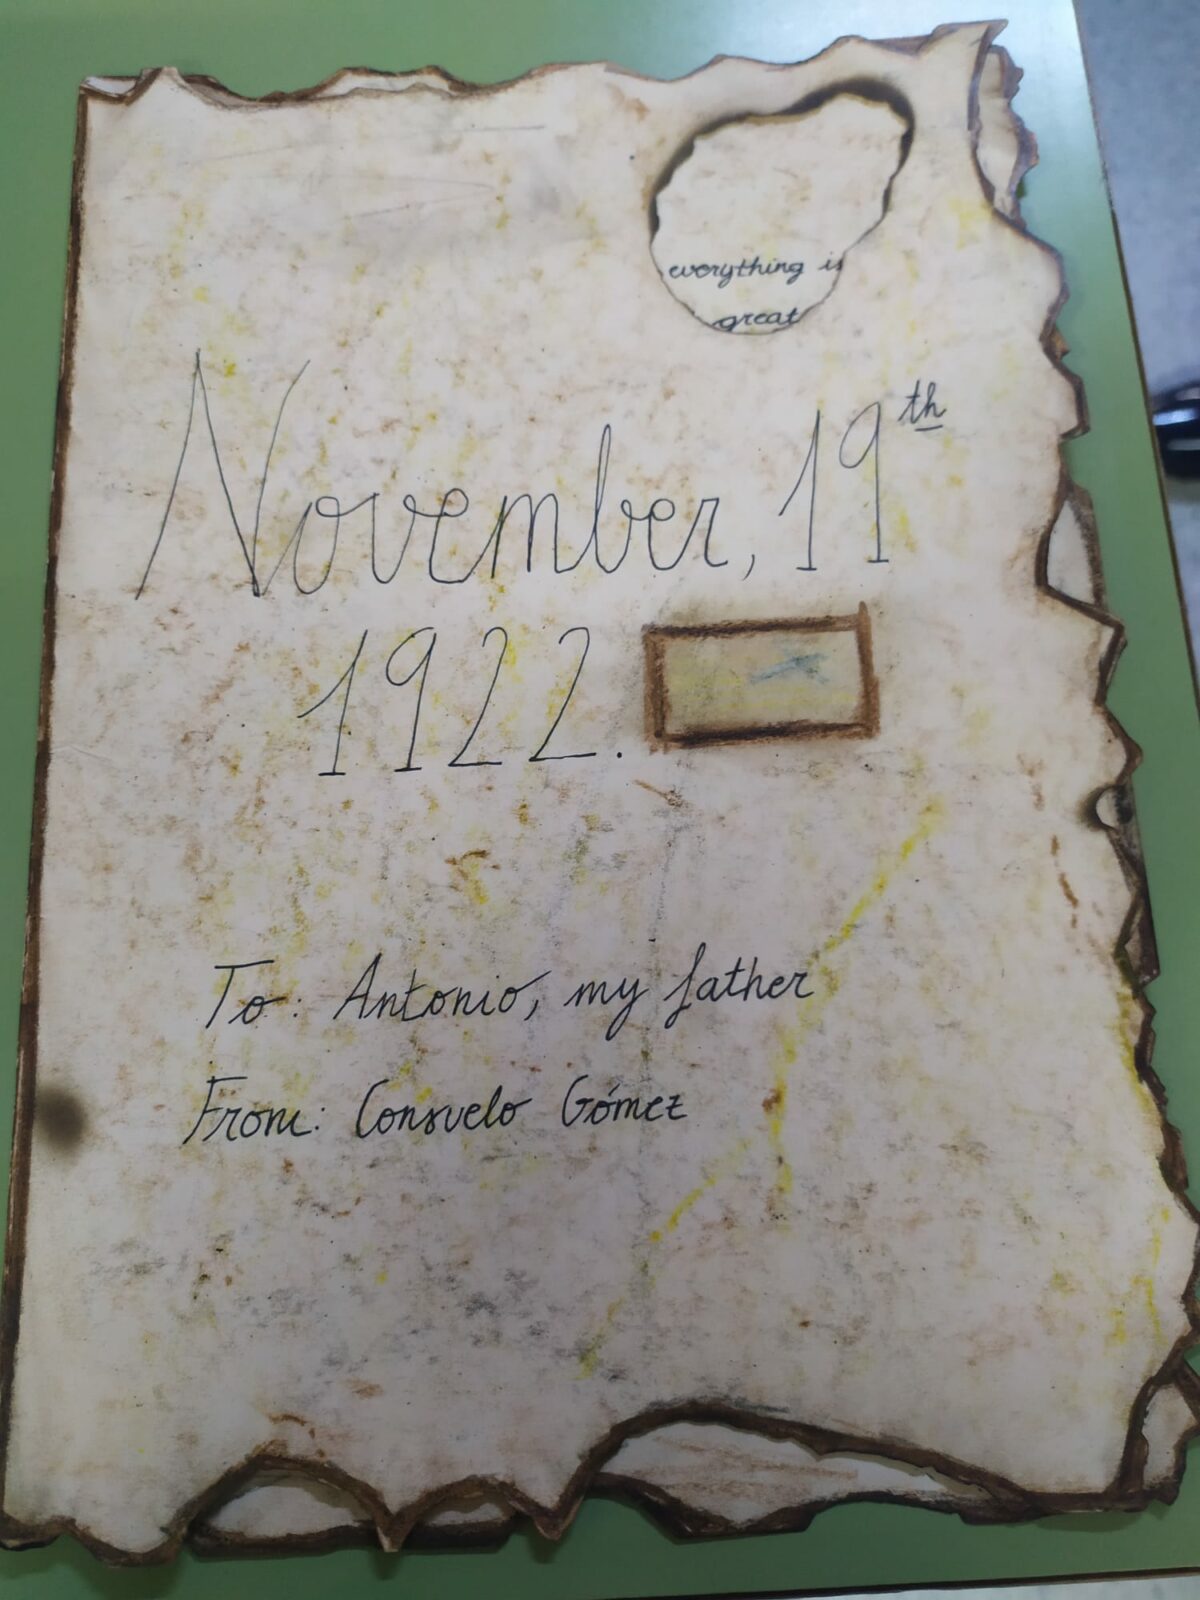 everything is
great
November, 19th
1922.
To: Antonio, my father
From: Consuelo Gómez